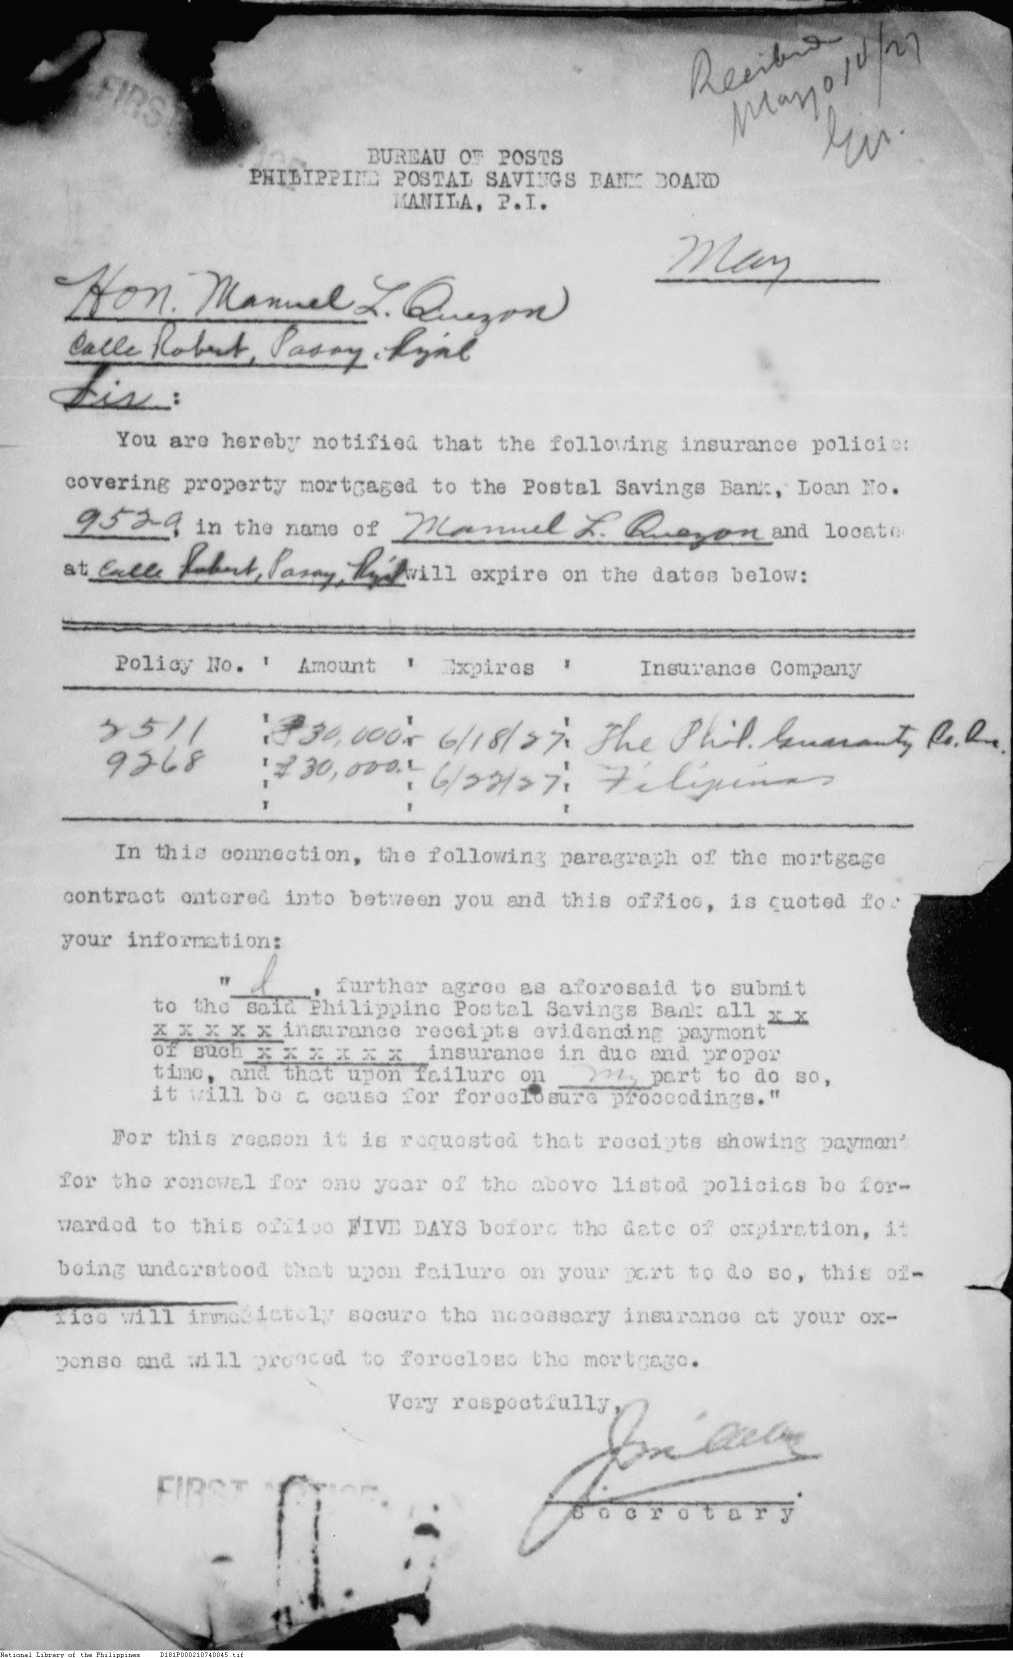 Received
May 10/27
FIRST
BUREAU OF POSTS
PHILIPPINE POSTAL SAVINGS BANK BOARD
MANILA, P.I.
May
Hon. Manuel L. Quezon
Calle Robert, Pasay, Rizal
Sir:
You are hereby notified that the following insurance policies
covering property mortgaged to the Postal Savings Bank, Loan No.
9529, in the name of Manuel L. Quezon and locate
at Calle Robert, Pasay, Rizal will expire on the dates below:
Policy No. ' Amount ' Expires ' Insurance Company
2511 ₱30,000.- 6/18/27 The Phil. Guaranty Co. Inc.
9268 ₱30,000.- 6/22/27 Filipinas
In this connection, the following paragraph of the mortgage
contract entered into between you and this office, is quoted for
your information:
" I , further agree as aforesaid to submit
to the said Philippine Postal Savings Bank all x x
x x x x x insurance receipts evidencing payment
of such x x x x x x insurance in due and proper
time, and that upon failure on my part to do so,
it will be a cause for foreclosure proceedings."
For this reason it is requested that receipts showing payment
for the renewal for one year of the above listed policies be for-
warded to this office FIVE DAYS before the date of expiration, it
being understood that upon failure on your part to do so, this of-
fice will immediately secure the necessary insurance at your ex-
pense and will proceed to foreclose the mortgage.
Very respectfully,
Secretary
FIRST NOTICE.
National Library of the Philippines D181P000210740045.tif